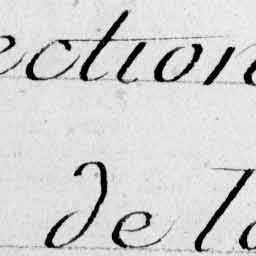 ection
de la